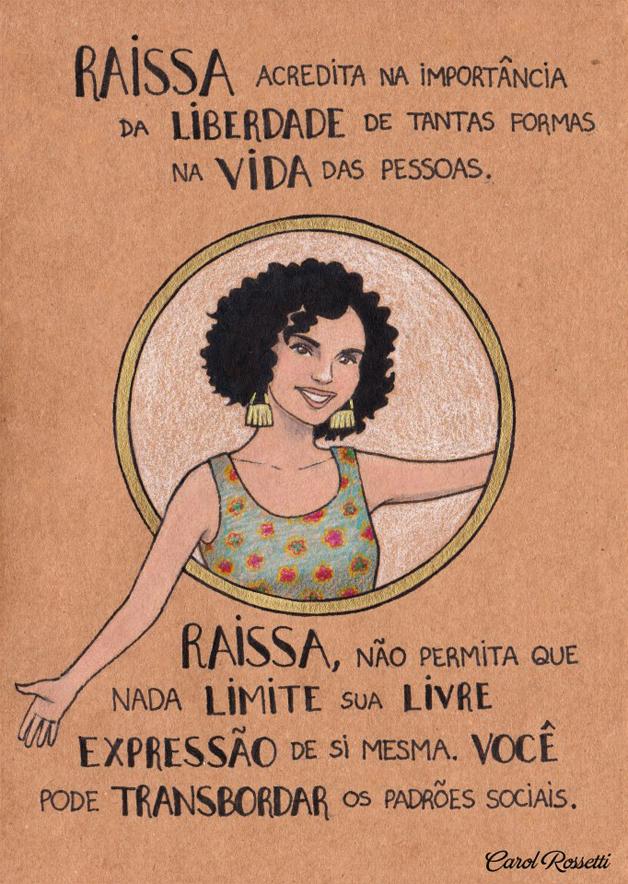 RAISSA ACREDITA NA IMPORTÂNCIA
DA LIBERDADE DE TANTAS FORMAS
NA VIDA DAS PESSOAS.
RAISSA, NÃO PERMITA QUE
NADA LIMITE SUA LIVRE
EXPRESSÃO DE SI MESMA. VOCÊ
PODE TRANSBORDAR OS PADRÕES SOCIAIS.
Carol Rossetti